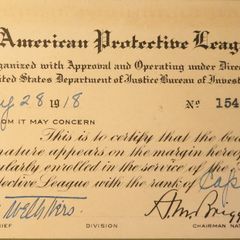 American Protective Leag
ganized with Approval and Operating under Direc
nited States Department of Justice Bureau of Invest
28 1918 No 154
OM IT MAY CONCERN
This is to certify that the be
nature appears on the margin hereo
ularly enrolled in the service of the
tective League with the rank of Cap
Websters A.M. Briggs
HIEF DIVISION CHAIRMAN NA